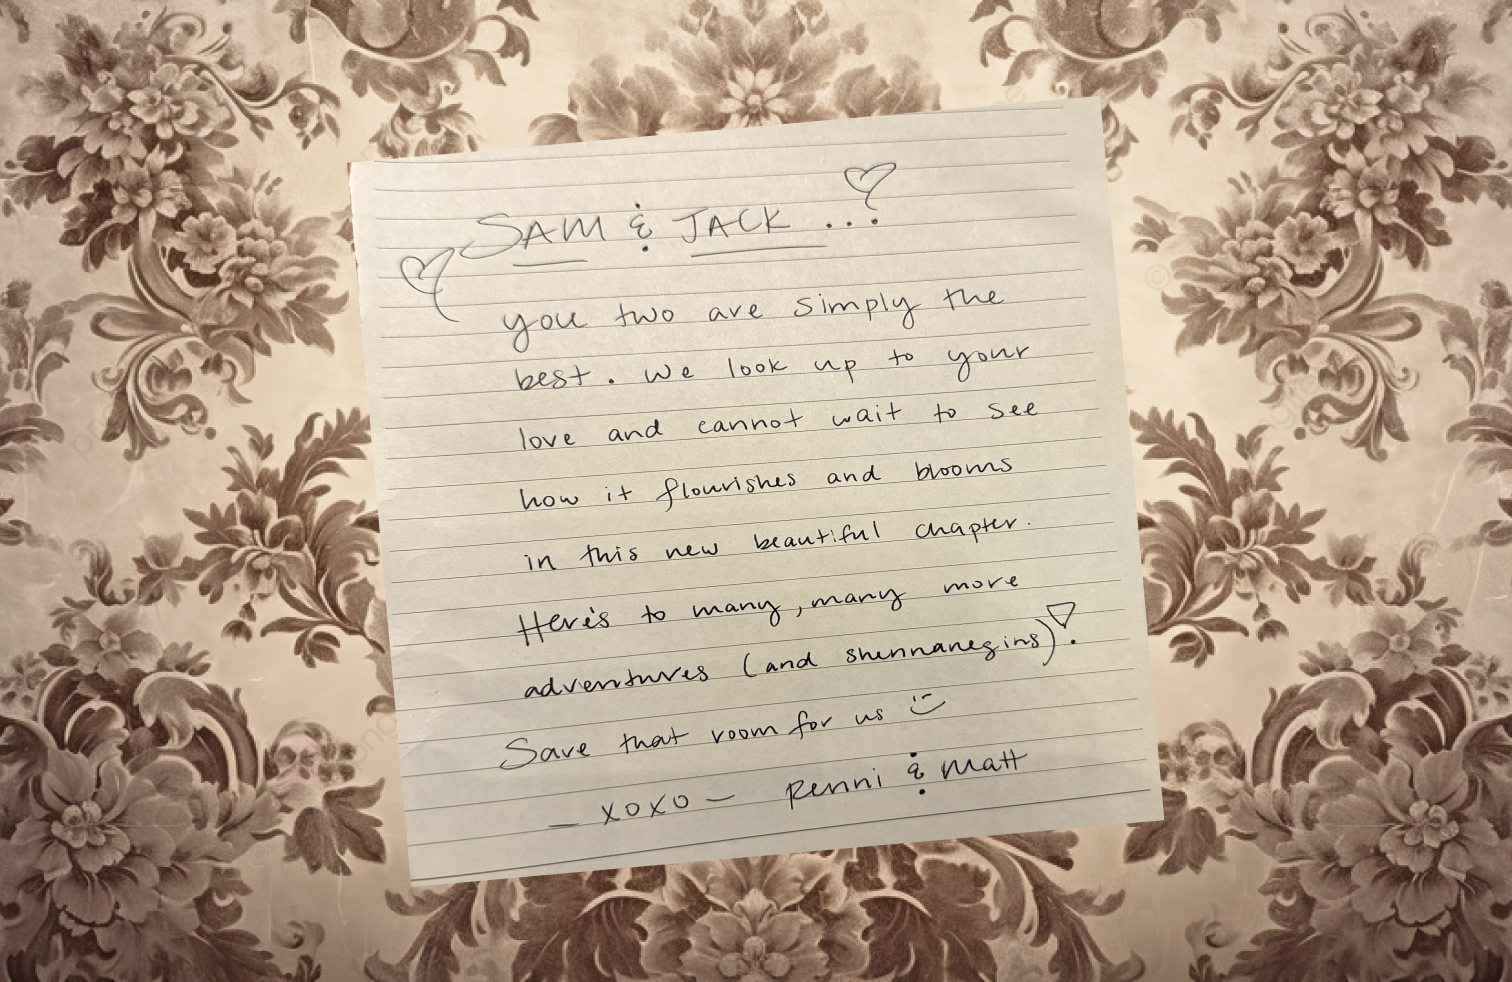 SAM & JACK ...
you two are simply the
best. We look up to your
love and cannot wait to see
how it flourishes and blooms
in this new beautiful chapter.
Here's to many, many more
adventures (and shennanegins)!
Save that room for us :)
— xoxo — Renni & Matt